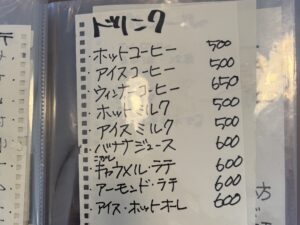 ドリンク
ホットコーヒー 500
アイスコーヒー 500
ウィンナーコーヒー 650
ホットミルク 500
アイスミルク 500
バナナジュース 600
キャラメル・ラテ 600
アーモンド・ラテ 600
アイス・ホットオーレ 600